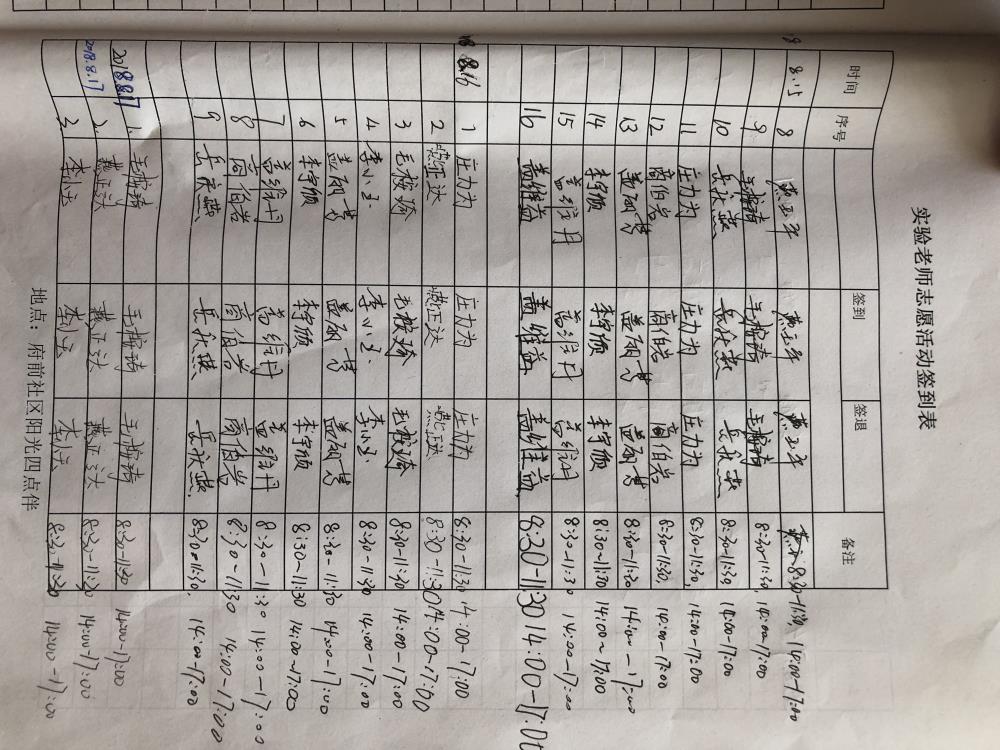 实验老师志愿活动签到表
时间 序号 签到 签退 备注
8.15 8 燕正平 燕正平 燕正平 8:30-11:30 14:00-17:00
9 毛梅琦 毛梅琦 毛梅琦 8:30-11:30, 14:00-17:00
10 岳秋燕 岳秋燕 岳秋燕 8:30-11:30, 14:00-17:00
11 庄力为 庄力为 庄力为 8:30-11:30, 14:00-17:00
12 商伯岩 商伯岩 商伯岩 8:30-11:30, 14:00-17:00
13 盖丽 盖丽 盖丽 8:30-11:30 14:00-17:00
14 李宇颀 李宇颀 李宇颀 8:30-11:30 14:00-17:00
15 维丹 维丹 维丹 8:30-11:30 14:00-17:00
16 盖维益 盖维益 盖维益 8:30-11:30 14:00-17:00
8.16 1 庄力为 庄力为 庄力为 8:30-11:30 14:00-17:00
2 燕正达 燕正达 燕正达 8:30-11:30 14:00-17:00
3 毛梅琦 毛梅琦 毛梅琦 8:30-11:30 14:00-17:00
4 李小 李小 李小 8:30-11:30 14:00-17:00
5 盖丽 盖丽 盖丽 8:30-11:30 14:00-17:00
6 李宇颀 李宇颀 李宇颀 8:30-11:30 14:00-17:00
7 维丹 维丹 维丹 8:30-11:30 14:00-17:00
8 商伯岩 商伯岩 商伯岩 8:30-11:30 14:00-17:00
9 岳秋燕 岳秋燕 岳秋燕 8:30-11:30, 14:00-17:00
2018.8.17 1. 毛梅琦 毛梅琦 毛梅琦 8:30-11:30 14:00-17:00
2018.8.17 2. 燕正达 燕正达 燕正达 8:30-11:30 14:00-17:00
3. 李小 李小 李小 8:30-11:30 14:00-17:00
地点：府前社区阳光四点伴